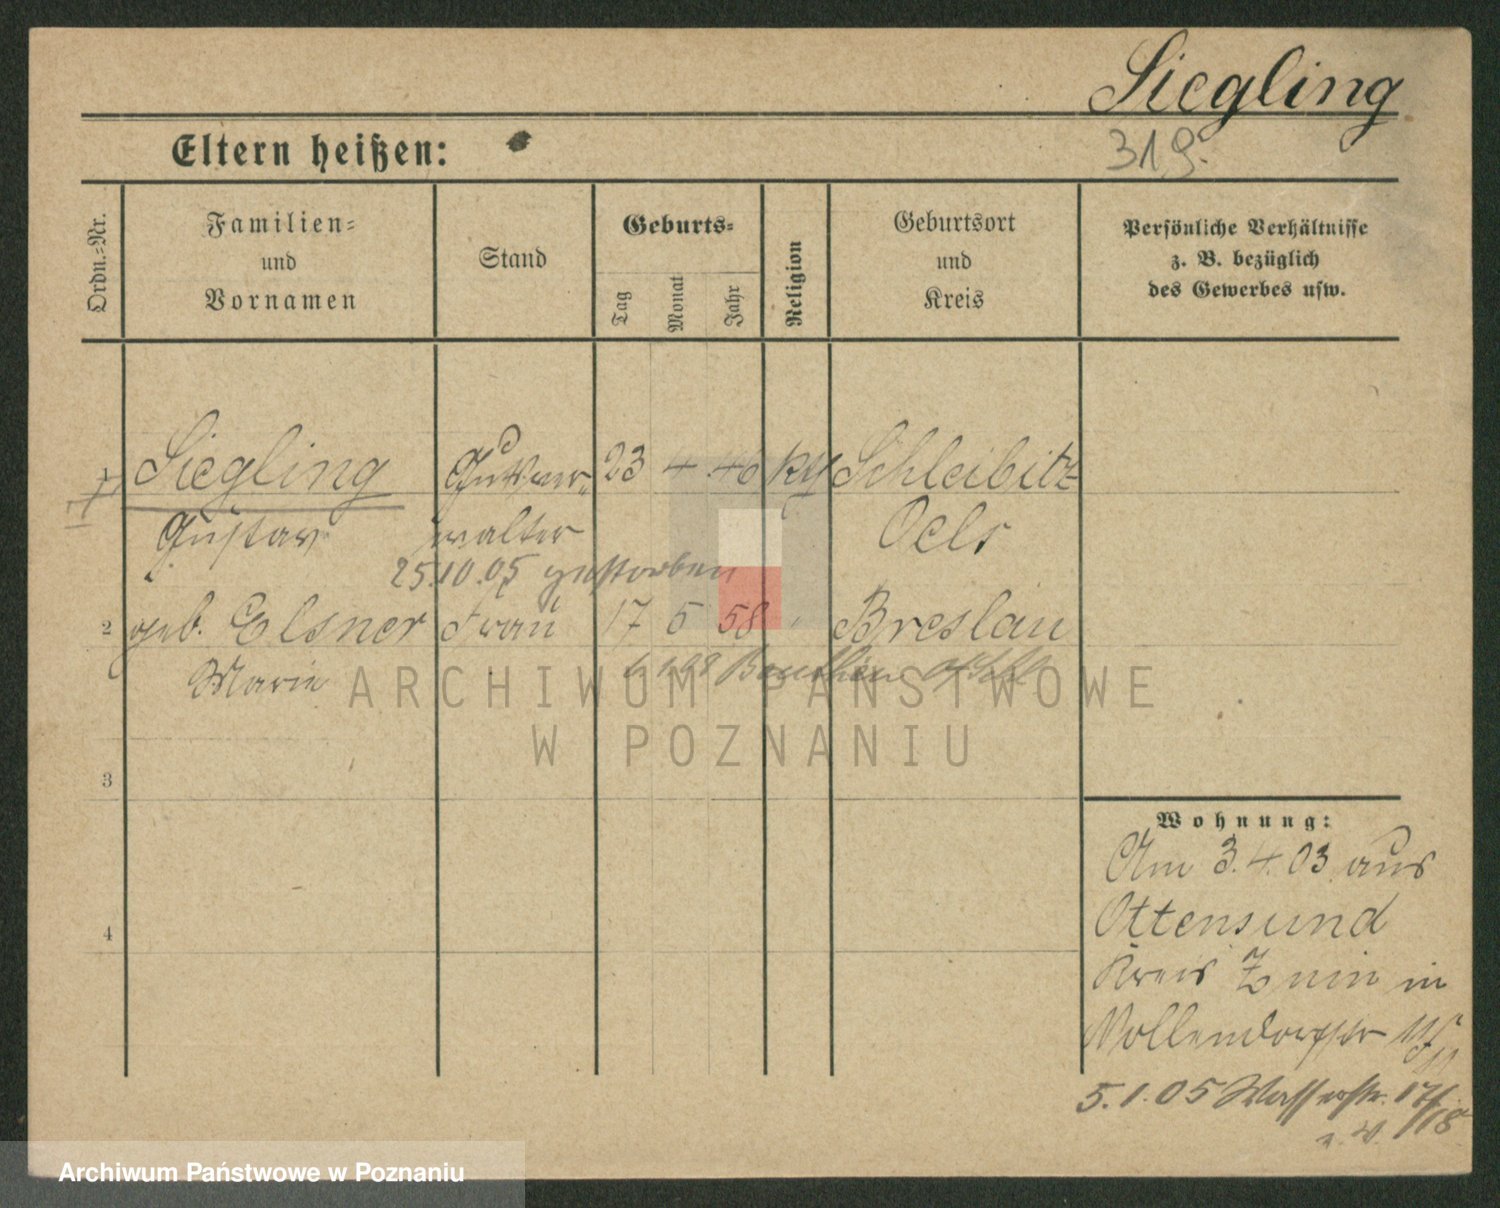 Siegling
319.
Eltern heißen:
Ordn.=Nr.
Familien=
und
Vornamen
Stand
Geburts=
Tag
Monat
Jahr
Religion
Geburtsort
und
Kreis
Persönliche Verhältnisse
z. B. bezüglich
des Gewerbes usw.
Siegling Gutsver- 23 4 46 Schleibitz
Gustav walter Oels
25.10.05 gestorben
2 geb. Elsner Frau 17 5 58 Breslau
Marie
ARCHIWUM PAŃSTWOWE
W POZNANIU
3
4
Wohnung:
Am 3.4.03 aus
Ottensund
Kreis Znin in
Nollendorfstr
5.1.05 Wasserstr. 17/18
Archiwum Państwowe w Poznaniu